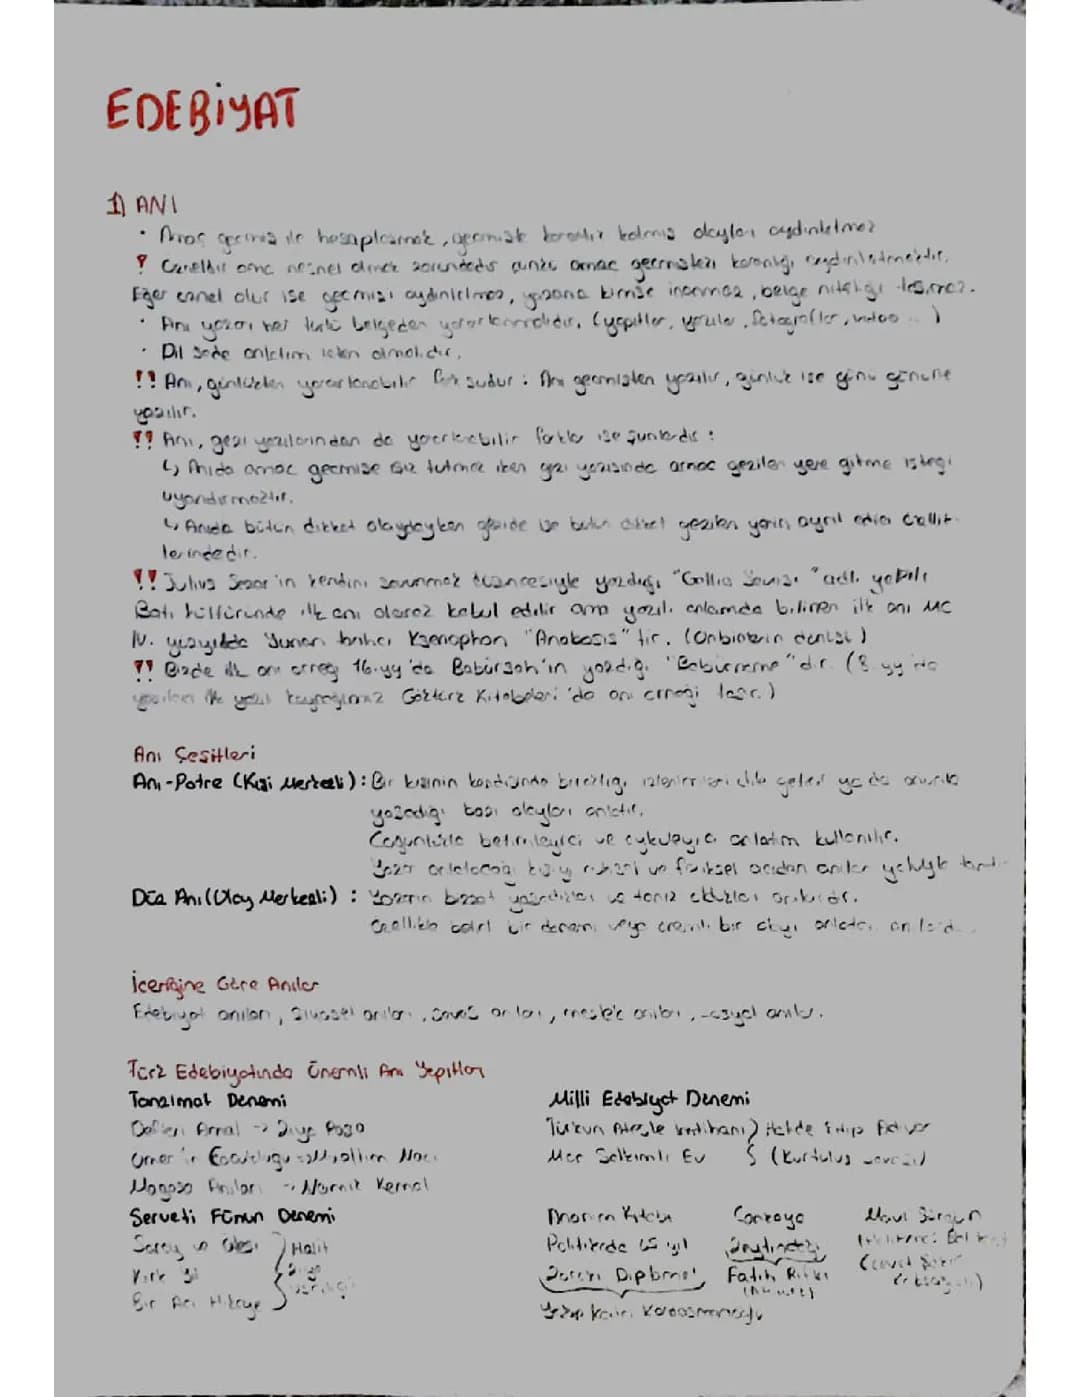 EDEBİYAT
1) ANI
• Amaç geçmiş ile hesaplaşmak, geçmişte karanlık kalmış olayları aydınlatmaz
? Özneldir ama nesnel olmak zorundadır çünkü amaç geçmişteki karanlığı aydınlatmaktır.
Eğer öznel olur ise geçmişi aydınlatmaz, yazana kimse inanmaz, belge niteliği taşımaz.
• Anı yazarı her türlü belgeden yararlanmalıdır. (yapıtlar, yazılar, fotoğraflar, video ... )
• Dil sade anlatım içten olmalıdır.
!! Anı, günlükten yararlanabilir farkı şudur: Anı geçmişten yazılır, günlük ise günü gününe
yazılır.
!! Anı, gezi yazılarından da yararlanabilir farklar ise şunlardır:
↳ Anıda amaç geçmişe ısız tutmak iken gezi yazısında amaç gezilen yere gitme isteği
uyandırmaktır.
↳ Anıda bütün dikkat olaydayken gezide ise bütün dikkat gezilen yerin ayırt edici özellik-
lerindedir.
!! Julius Sezar'ın kendini savunmak düşüncesiyle yazdığı "Gallia Savaşı" adlı yapıtı
Batı kültüründe ilk anı olarak kabul edilir ama yazılı anlamda bilinen ilk anı MÖ
IV. yüzyılda Yunan tarihçi Ksenophon "Anabasis" tir. (Onbinlerin dönüşü)
!! Bizde ilk anı örneği 16.yy'da Babürşah'ın yazdığı "Babürname"dir. (8.yy'da
yazılan ilk yazılı kaynağımız Göktürk Kitabeleri'da anı örneği taşır.)
Anı Çeşitleri
Anı-Potre (Kişi Merkezli): Bir kişinin kendisinde bıraktığı izlenimleri dile getirir ya da onunla
yaşadığı bazı olayları anlatır.
Çoğunlukla betimleyici ve öyküleyici anlatım kullanılır.
Yazar anlatacağı kişiyi ruhsal ve fiziksel açıdan anılar yoluyla tanıtır
Düz Anı (Olay Merkezli): Yazarın bizzat yaşadıkları ve tanık oldukları anılardır.
Özellikle belirli bir dönemi veya önemli bir olayı anlatan anılardır.
İçeriğine Göre Anılar
Edebiyat anıları, siyasal anılar, savaş anıları, meslek anıları, sosyal anılar.
Türk Edebiyatında Önemli Anı Yapıtları
Tanzimat Dönemi
Defter-i Amal → Ziya Paşa
Ömer'in Çocukluğu → Muallim Naci
Magosa Anıları → Namık Kemal
Serveti Fünun Dönemi
Saray ve Ötesi
Kırk Yıl
Bir Acı Hikaye
Halit Ziya Uşaklıgil
Milli Edebiyat Dönemi
Türkün Ateşle İmtihanı
Mor Salkımlı Ev
Halide Edip Adıvar
(Kurtuluş Savaşı)
Anamın Kitabı
Politikada 45 yıl
Zoraki Diplomat
Yakup Kadri Karaosmanoğlu
Çankaya
Zeytindağı
Fatih Rıfkı
(Atatürk)
Mavi Sürgün
(Halikarnas Balıkçısı)
(Cevat Şakir
Kabaağaçlı)